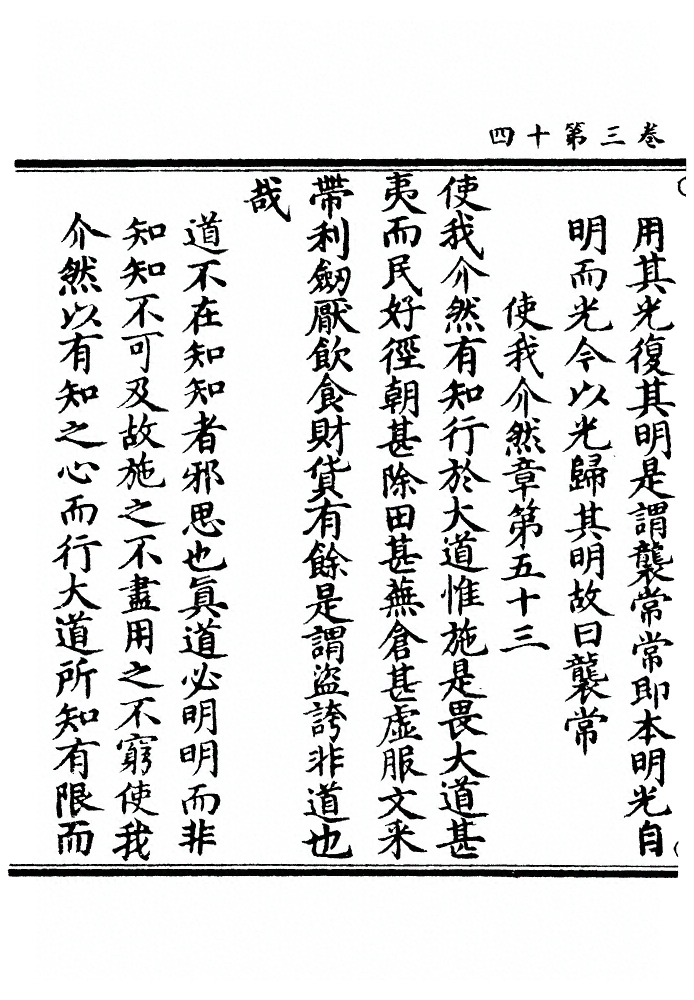 卷三第十四
用其光復其明是謂襲常常即本明光自
明而光今以光歸其明故曰襲常
使我介然章第五十三
使我介然有知行於大道惟施是畏大道甚
夷而民好徑朝甚除田甚蕪倉甚虛服文采
帶利劒厭飲食財貨有餘是謂盜誇非道也
哉
道不在知知者邪思也眞道必明明而非
知知不可及故施之不盡用之不窮使我
介然以有知之心而行大道所知有限而